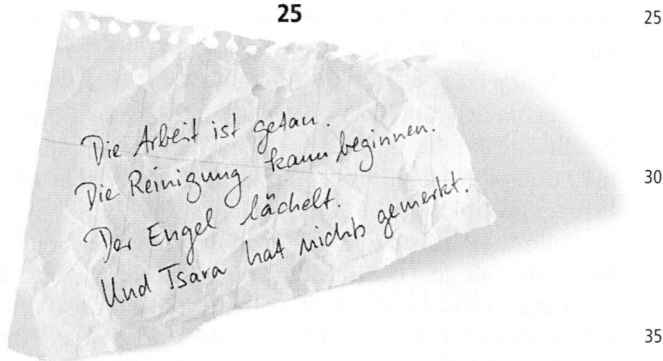 25
25
Die Arbeit ist getan.
Die Reinigung kann beginnen.
30
Der Engel lächelt.
Und Tsara hat nichts gemerkt.
35